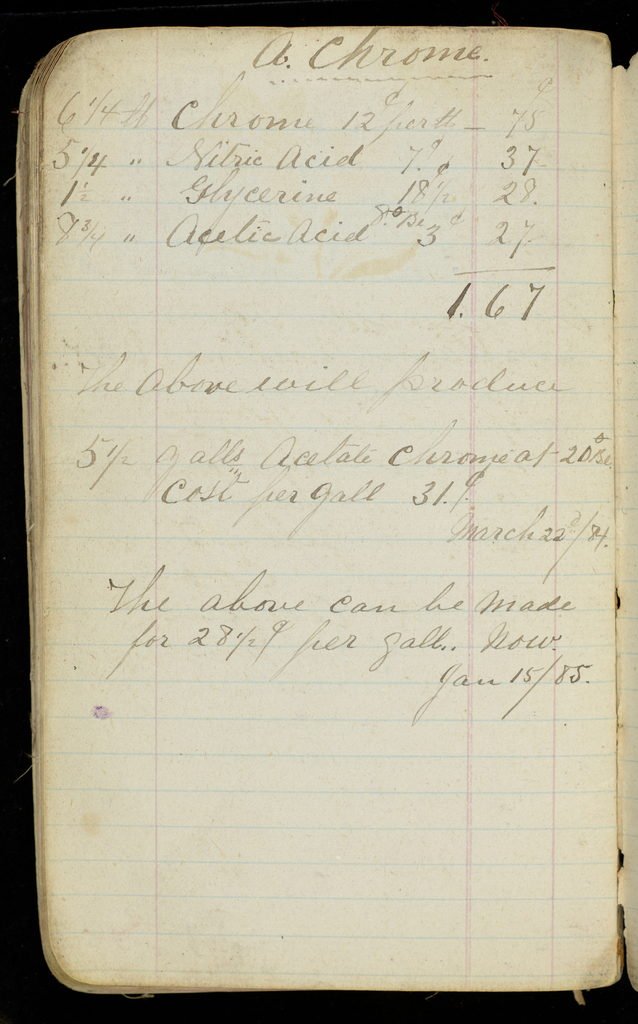 A. Chrome.
6 1/4 lb Chrome 12¢ per lb — 75¢
5 1/4 " Nitric Acid 7.¢ 37
1 1/2 " Glycerine 18 1/2¢ 28.
8 3/4 " Acetic Acid 8.° Be 3¢ 27.
1.67
The above will produce
5 1/2 galls Acetate Chrome at 20° Be.
Cost per gall 31.¢
March 22d/84.
The above can be made
for 28 1/2¢ per gall.. Now.
Jan 15/85.